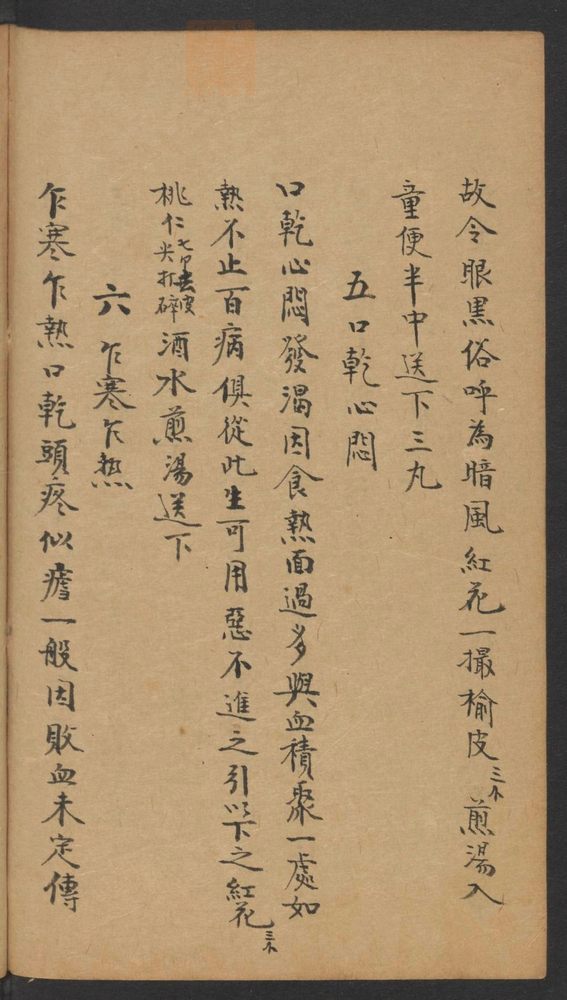 故令眼黒俗呼為暗風紅花一撮榆皮三个煎湯入
童便半中送下三丸
五口乾心悶
口乾心悶發渴因食熱面過多與血積聚一處如
熱不止百病俱從此生可用惡不進之引以下之紅花三个
桃仁七尖去皮打碎酒水煎湯送下
六乍寒乍熱
乍寒乍熱口乾頭疼似瘧一般因敗血未定傳